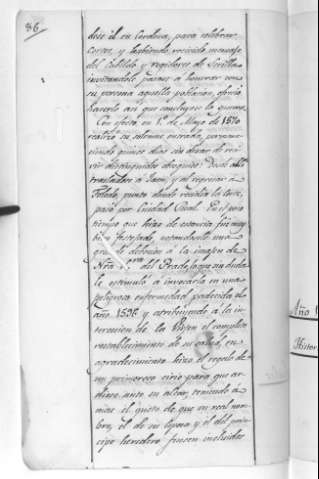 86.
dose él en Cordova, para celebrar
Cortes, y habiendo recivido mensage
del Cabildo y regidores de Sevilla
invitandole pasase a honrar con
su persona aquella poblacion, ofreció
hacerlo así que concluyese la guerra.
Con efecto en 1º de Mayo de 1570
realizó su solemne entrada, permane-
ciendo quince dias sin dejar de re-
civir distinguidos obsequios. Desde allí
trasladose a Jaen, y al regresar á
Toledo, punto donde residia la Corte,
pasó por Ciudad Real. En el poco
tiempo que hizo de estancia fué muy
bien festejado, notandosele una
gran devocion á la imagen de
Ntra. Sra. del Prado, lo que sin duda
le estimuló a invocarla en una
peligrosa enfermedad padecida el
año 1596 y atribuyendo á la in-
tercesion de la Virgen el completo
restablecimiento de su salud, en
agradecimiento hizo el regalo de
un primoroso cirio para que ar-
diese ante su altar, teniendo á
mas el gusto de que su real nom-
bre, el de su esposa y el del prin-
cipe heredero fuesen incluidos
Año 1
Histor